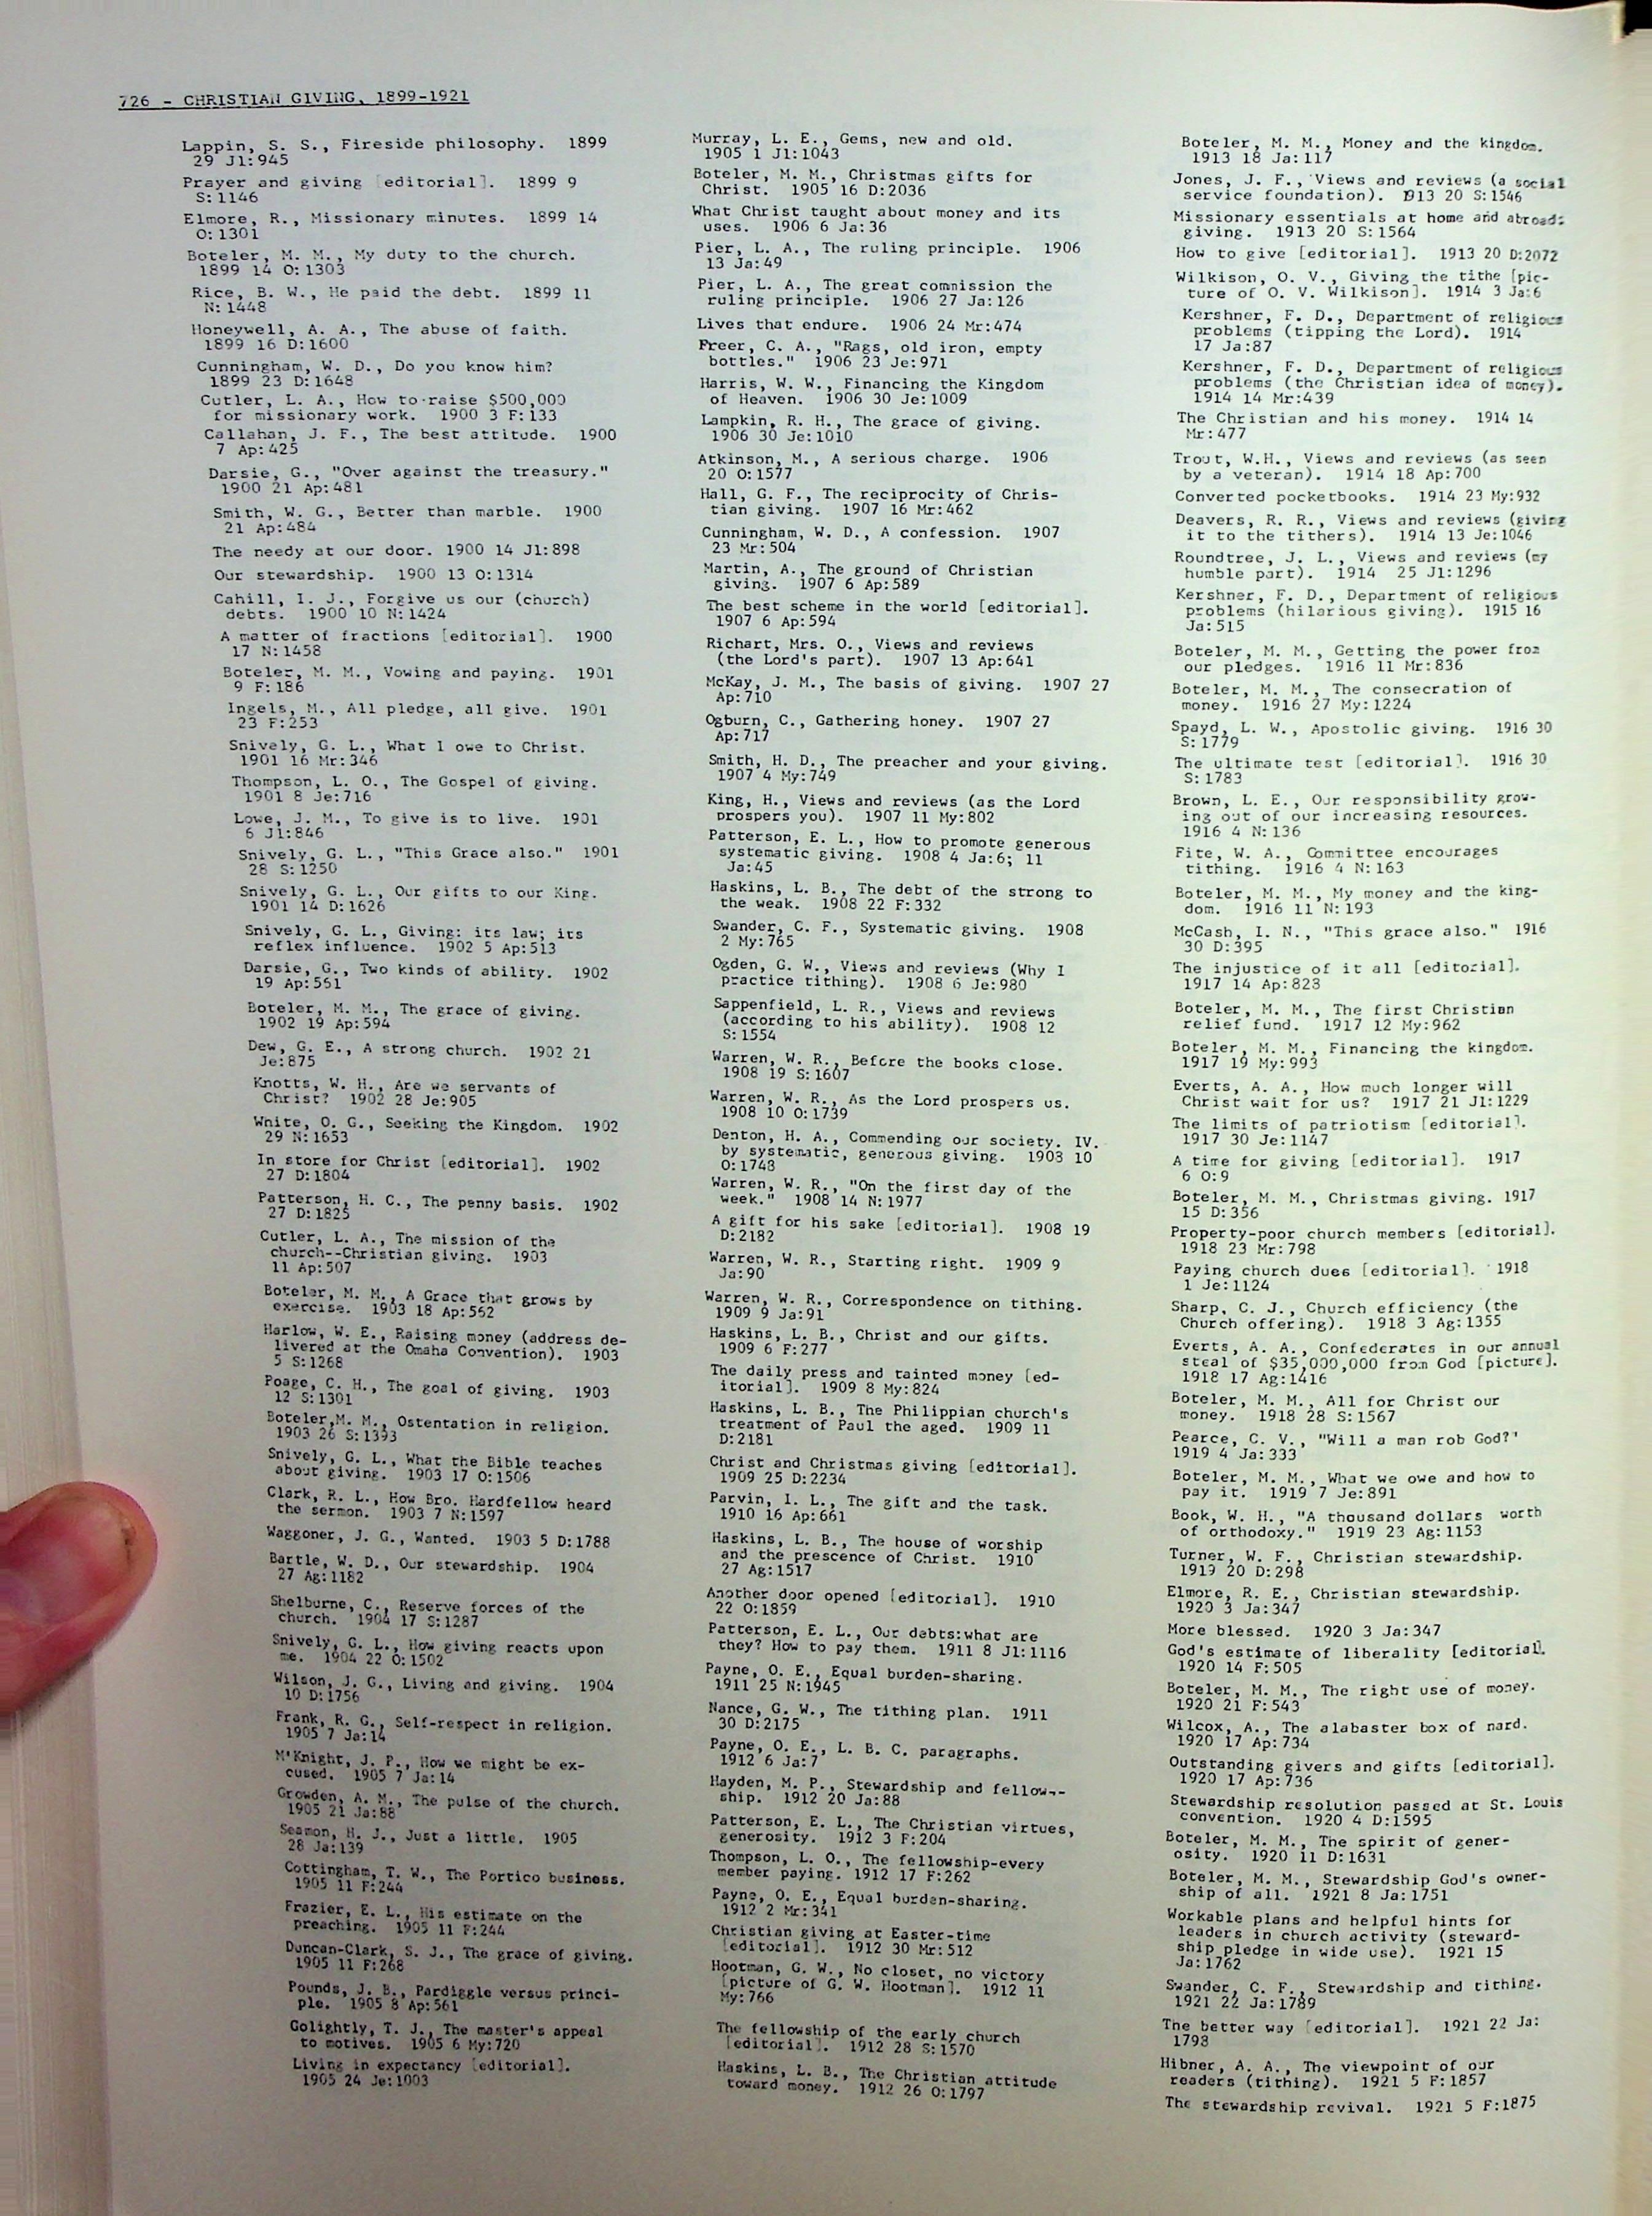 726 - CHRISTIAN GIVING, 1899-1921
Lappin, S. S., Fireside philosophy. 1899
29 Jl:945
Prayer and giving [editorial]. 1899 9
S:1146
Elmore, R., Missionary minutes. 1899 14
O:1301
Boteler, M. M., My duty to the church.
1899 14 O:1303
Rice, B. W., He paid the debt. 1899 11
N:1448
Honeywell, A. A., The abuse of faith.
1899 16 D:1600
Cunningham, W. D., Do you know him?
1899 23 D:1648
Cutler, L. A., How to raise $500,000
for missionary work. 1900 3 F:133
Callahan, J. F., The best attitude. 1900
7 Ap:425
Darsie, G., "Over against the treasury."
1900 21 Ap:481
Smith, W. G., Better than marble. 1900
21 Ap:484
The needy at our door. 1900 14 Jl:898
Our stewardship. 1900 13 O:1314
Cahill, I. J., Forgive us our (church)
debts. 1900 10 N:1424
A matter of fractions [editorial]. 1900
17 N:1458
Boteler, M. M., Vowing and paying. 1901
9 F:186
Ingels, M., All pledge, all give. 1901
23 F:253
Snively, G. L., What I owe to Christ.
1901 16 Mr:346
Thompson, L. O., The Gospel of giving.
1901 8 Je:716
Lowe, J. M., To give is to live. 1901
6 Jl:846
Snively, G. L., "This Grace also." 1901
28 S:1250
Snively, G. L., Our gifts to our King.
1901 14 D:1626
Snively, G. L., Giving: its law; its
reflex influence. 1902 5 Ap:513
Darsie, G., Two kinds of ability. 1902
19 Ap:551
Boteler, M. M., The grace of giving.
1902 19 Ap:594
Dew, G. E., A strong church. 1902 21
Je:875
Knotts, W. H., Are we servants of
Christ? 1902 28 Je:905
White, O. G., Seeking the Kingdom. 1902
29 N:1653
In store for Christ [editorial]. 1902
27 D:1804
Patterson, H. C., The penny basis. 1902
27 D:1825
Cutler, L. A., The mission of the
church--Christian giving. 1903
11 Ap:507
Boteler, M. M., A Grace that grows by
exercise. 1903 18 Ap:562
Harlow, W. E., Raising money (address de-
livered at the Omaha Convention). 1903
5 S:1268
Poage, C. H., The goal of giving. 1903
12 S:1301
Boteler,M. M., Ostentation in religion.
1903 26 S:1393
Snively, G. L., What the Bible teaches
about giving. 1903 17 O:1506
Clark, R. L., How Bro. Hardfellow heard
the sermon. 1903 7 N:1597
Waggoner, J. G., Wanted. 1903 5 D:1788
Bartle, W. D., Our stewardship. 1904
27 Ag:1182
Shelburne, C., Reserve forces of the
church. 1904 17 S:1287
Snively, G. L., How giving reacts upon
me. 1904 22 O:1502
Wilson, J. G., Living and giving. 1904
10 D:1756
Frank, R. G., Self-respect in religion.
1905 7 Ja:14
M'Knight, J. P., How we might be ex-
cused. 1905 7 Ja:14
Growden, A. M., The pulse of the church.
1905 21 Ja:88
Seamon, H. J., Just a little. 1905
28 Ja:139
Cottingham, T. W., The Portico business.
1905 11 F:244
Frazier, E. L., His estimate on the
preaching. 1905 11 F:244
Duncan-Clark, S. J., The grace of giving.
1905 11 F:268
Pounds, J. B., Pardiggle versus princi-
ple. 1905 8 Ap:561
Golightly, T. J., The master's appeal
to motives. 1905 6 My:720
Living in expectancy [editorial].
1905 24 Je:1003
Murray, L. E., Gems, new and old.
1905 1 Jl:1043
Boteler, M. M., Christmas gifts for
Christ. 1905 16 D:2036
What Christ taught about money and its
uses. 1906 6 Ja:36
Pier, L. A., The ruling principle. 1906
13 Ja:49
Pier, L. A., The great commission the
ruling principle. 1906 27 Ja:126
Lives that endure. 1906 24 Mr:474
Freer, C. A., "Rags, old iron, empty
bottles." 1906 23 Je:971
Harris, W. W., Financing the Kingdom
of Heaven. 1906 30 Je:1009
Lampkin, R. H., The grace of giving.
1906 30 Je:1010
Atkinson, M., A serious charge. 1906
20 O:1577
Hall, G. F., The reciprocity of Chris-
tian giving. 1907 16 Mr:462
Cunningham, W. D., A confession. 1907
23 Mr:504
Martin, A., The ground of Christian
giving. 1907 6 Ap:589
The best scheme in the world [editorial].
1907 6 Ap:594
Richart, Mrs. O., Views and reviews
(the Lord's part). 1907 13 Ap:641
McKay, J. M., The basis of giving. 1907 27
Ap:710
Ogburn, C., Gathering honey. 1907 27
Ap:717
Smith, H. D., The preacher and your giving.
1907 4 My:749
King, H., Views and reviews (as the Lord
prospers you). 1907 11 My:802
Patterson, E. L., How to promote generous
systematic giving. 1908 4 Ja:6; 11
Ja:45
Haskins, L. B., The debt of the strong to
the weak. 1908 22 F:332
Swander, C. F., Systematic giving. 1908
2 My:765
Ogden, G. W., Views and reviews (Why I
practice tithing). 1908 6 Je:980
Sappenfield, L. R., Views and reviews
(according to his ability). 1908 12
S:1554
Warren, W. R., Before the books close.
1908 19 S:1607
Warren, W. R., As the Lord prospers us.
1908 10 O:1739
Denton, H. A., Commending our society. IV.
by systematic, generous giving. 1903 10
O:1743
Warren, W. R., "On the first day of the
week." 1908 14 N:1977
A gift for his sake [editorial]. 1908 19
D:2182
Warren, W. R., Starting right. 1909 9
Ja:90
Warren, W. R., Correspondence on tithing.
1909 9 Ja:91
Haskins, L. B., Christ and our gifts.
1909 6 F:277
The daily press and tainted money [ed-
itorial]. 1909 8 My:824
Haskins, L. B., The Philippian church's
treatment of Paul the aged. 1909 11
D:2181
Christ and Christmas giving [editorial].
1909 25 D:2234
Parvin, I. L., The gift and the task.
1910 16 Ap:661
Haskins, L. B., The house of worship
and the prescence of Christ. 1910
27 Ag:1517
Another door opened [editorial]. 1910
22 O:1859
Patterson, E. L., Our debts:what are
they? How to pay them. 1911 8 Jl:1116
Payne, O. E., Equal burden-sharing.
1911 25 N:1945
Nance, G. W., The tithing plan. 1911
30 D:2175
Payne, O. E., L. B. C. paragraphs.
1912 6 Ja:7
Hayden, M. P., Stewardship and fellow--
ship. 1912 20 Ja:88
Patterson, E. L., The Christian virtues,
generosity. 1912 3 F:204
Thompson, L. O., The fellowship-every
member paying. 1912 17 F:262
Payne, O. E., Equal burden-sharing.
1912 2 Mr:341
Christian giving at Easter-time
[editorial]. 1912 30 Mr:512
Hootman, G. W., No closet, no victory
[picture of G. W. Hootman]. 1912 11
My:766
The fellowship of the early church
[editorial]. 1912 28 S:1570
Haskins, L. B., The Christian attitude
toward money. 1912 26 O:1797
Boteler, M. M., Money and the kingdom.
1913 18 Ja:117
Jones, J. F., Views and reviews (a social
service foundation). 1913 20 S:1546
Missionary essentials at home and abroad:
giving. 1913 20 S:1564
How to give [editorial]. 1913 20 D:2072
Wilkison, O. V., Giving the tithe [pic-
ture of O. V. Wilkison]. 1914 3 Ja:6
Kershner, F. D., Department of religious
problems (tipping the Lord). 1914
17 Ja:87
Kershner, F. D., Department of religious
problems (the Christian idea of money).
1914 14 Mr:439
The Christian and his money. 1914 14
Mr:477
Trout, W.H., Views and reviews (as seen
by a veteran). 1914 18 Ap:700
Converted pocketbooks. 1914 23 My:932
Deavers, R. R., Views and reviews (giving
it to the tithers). 1914 13 Je:1046
Roundtree, J. L., Views and reviews (my
humble part). 1914 25 Jl:1296
Kershner, F. D., Department of religious
problems (hilarious giving). 1915 16
Ja:515
Boteler, M. M., Getting the power from
our pledges. 1916 11 Mr:836
Boteler, M. M., The consecration of
money. 1916 27 My:1224
Spayd, L. W., Apostolic giving. 1916 30
S:1779
The ultimate test [editorial]. 1916 30
S:1783
Brown, L. E., Our responsibility grow-
ing out of our increasing resources.
1916 4 N:136
Fite, W. A., Committee encourages
tithing. 1916 4 N:163
Boteler, M. M., My money and the king-
dom. 1916 11 N:193
McCash, I. N., "This grace also." 1916
30 D:395
The injustice of it all [editorial].
1917 14 Ap:823
Boteler, M. M., The first Christian
relief fund. 1917 12 My:962
Boteler, M. M., Financing the kingdom.
1917 19 My:993
Everts, A. A., How much longer will
Christ wait for us? 1917 21 Jl:1229
The limits of patriotism [editorial].
1917 30 Je:1147
A time for giving [editorial]. 1917
6 O:9
Boteler, M. M., Christmas giving. 1917
15 D:356
Property-poor church members [editorial].
1918 23 Mr:798
Paying church dues [editorial]. 1918
1 Je:1124
Sharp, C. J., Church efficiency (the
Church offering). 1918 3 Ag:1355
Everts, A. A., Confederates in our annual
steal of $35,000,000 from God [picture].
1918 17 Ag:1416
Boteler, M. M., All for Christ our
money. 1918 28 S:1567
Pearce, C. V., "Will a man rob God?"
1919 4 Ja:333
Boteler, M. M., What we owe and how to
pay it. 1919 7 Je:891
Book, W. H., "A thousand dollars worth
of orthodoxy." 1919 23 Ag:1153
Turner, W. F., Christian stewardship.
1919 20 D:298
Elmore, R. E., Christian stewardship.
1920 3 Ja:347
More blessed. 1920 3 Ja:347
God's estimate of liberality [editorial].
1920 14 F:505
Boteler, M. M., The right use of money.
1920 21 F:543
Wilcox, A., The alabaster box of nard.
1920 17 Ap:734
Outstanding givers and gifts [editorial].
1920 17 Ap:736
Stewardship resolution passed at St. Louis
convention. 1920 4 D:1595
Boteler, M. M., The spirit of gener-
osity. 1920 11 D:1631
Boteler, M. M., Stewardship God's owner-
ship of all. 1921 8 Ja:1751
Workable plans and helpful hints for
leaders in church activity (steward-
ship pledge in wide use). 1921 15
Ja:1762
Swander, C. F., Stewardship and tithing.
1921 22 Ja:1789
The better way [editorial]. 1921 22 Ja:
1793
Hibner, A. A., The viewpoint of our
readers (tithing). 1921 5 F:1857
The stewardship revival. 1921 5 F:1875